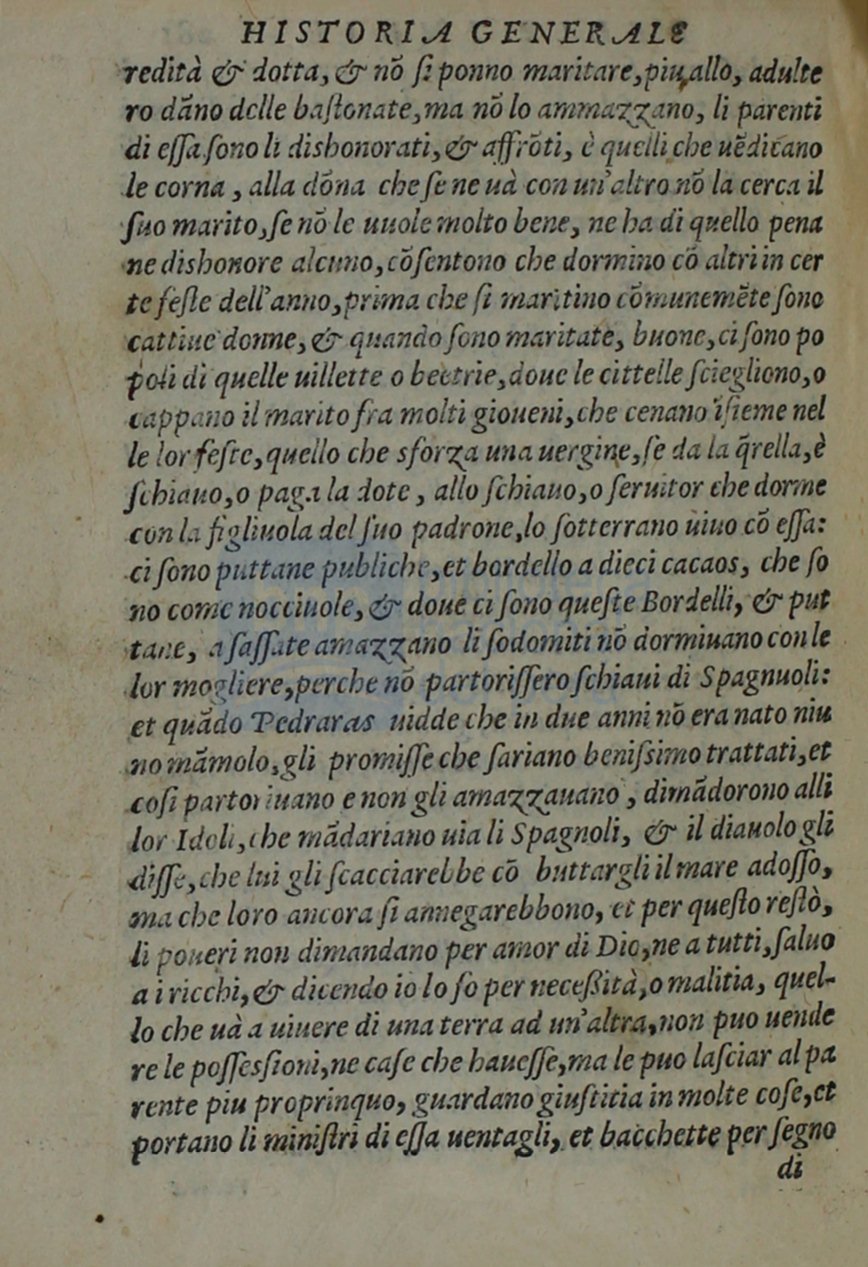 HISTORIA GENERALE
redità & dotta, & nõ ſi ponno maritare, piu, allo, adulte
ro dãno delle baſtonate, ma nõ lo ammazzano, li parenti
di eſſa ſono li dishonorati, & affrõti, è quelli che uẽdicano
le corna, alla dõna che ſe ne uà con un'altro nõ la cerca il
ſuo marito, ſe nõ le uuole molto bene, ne ha di quello pena
ne dishonore alcuno, cõſentono che dormino cõ altri in cer
te feſte dell'anno, prima che ſi maritino cõmunemẽte ſono
cattiue donne, & quando ſono maritate, buone, ci ſono po
poli di quelle uillette o beetrie, doue le cittelle ſciegliono, o
cappano il marito fra molti gioueni, che cenano ĩſieme nel
le lor feſte, quello che sforza una uergine, ſe da la q̃rella, è
ſchiauo, o paga la dote, allo ſchiauo, o ſeruitor che dorme
con la figliuola del ſuo padrone, lo ſotterrano uiuo cõ eſſa:
ci ſono puttane publiche, et bordello a dieci cacaos, che ſo
no come nocciuole, & doue ci ſono queſte Bordelli, & put
tane, a ſaſſate amazzano li ſodomiti nõ dormiuano con le
lor mogliere, perche nõ partoriſſero ſchiaui di Spagnuoli:
et quãdo Pedraras uidde che in due anni nõ era nato niu
no mãmolo, gli promiſſe che ſariano beniſsimo trattati, et
coſi partoriuano e non gli amazzauano, dimãdorono alli
lor Idoli, che mãdariano uia li Spagnoli, & il diauolo gli
diſſe, che lui gli ſcacciarebbe cõ buttargli il mare adoſſo,
ma che loro ancora ſi annegarebbono, et per queſto reſtò,
li poueri non dimandano per amor di Dio, ne a tutti, ſaluo
a i ricchi, & dicendo io lo fo per neceßità, o malitia, quel-
lo che uà a uiuere di una terra ad un'altra, non puo uende
re le poſſeſsioni, ne caſe che haueſſe, ma le puo laſciar al pa
rente piu proprinquo, guardano giuſtitia in molte coſe, et
portano li miniſtri di eſſa uentagli, et bacchette per ſegno
di